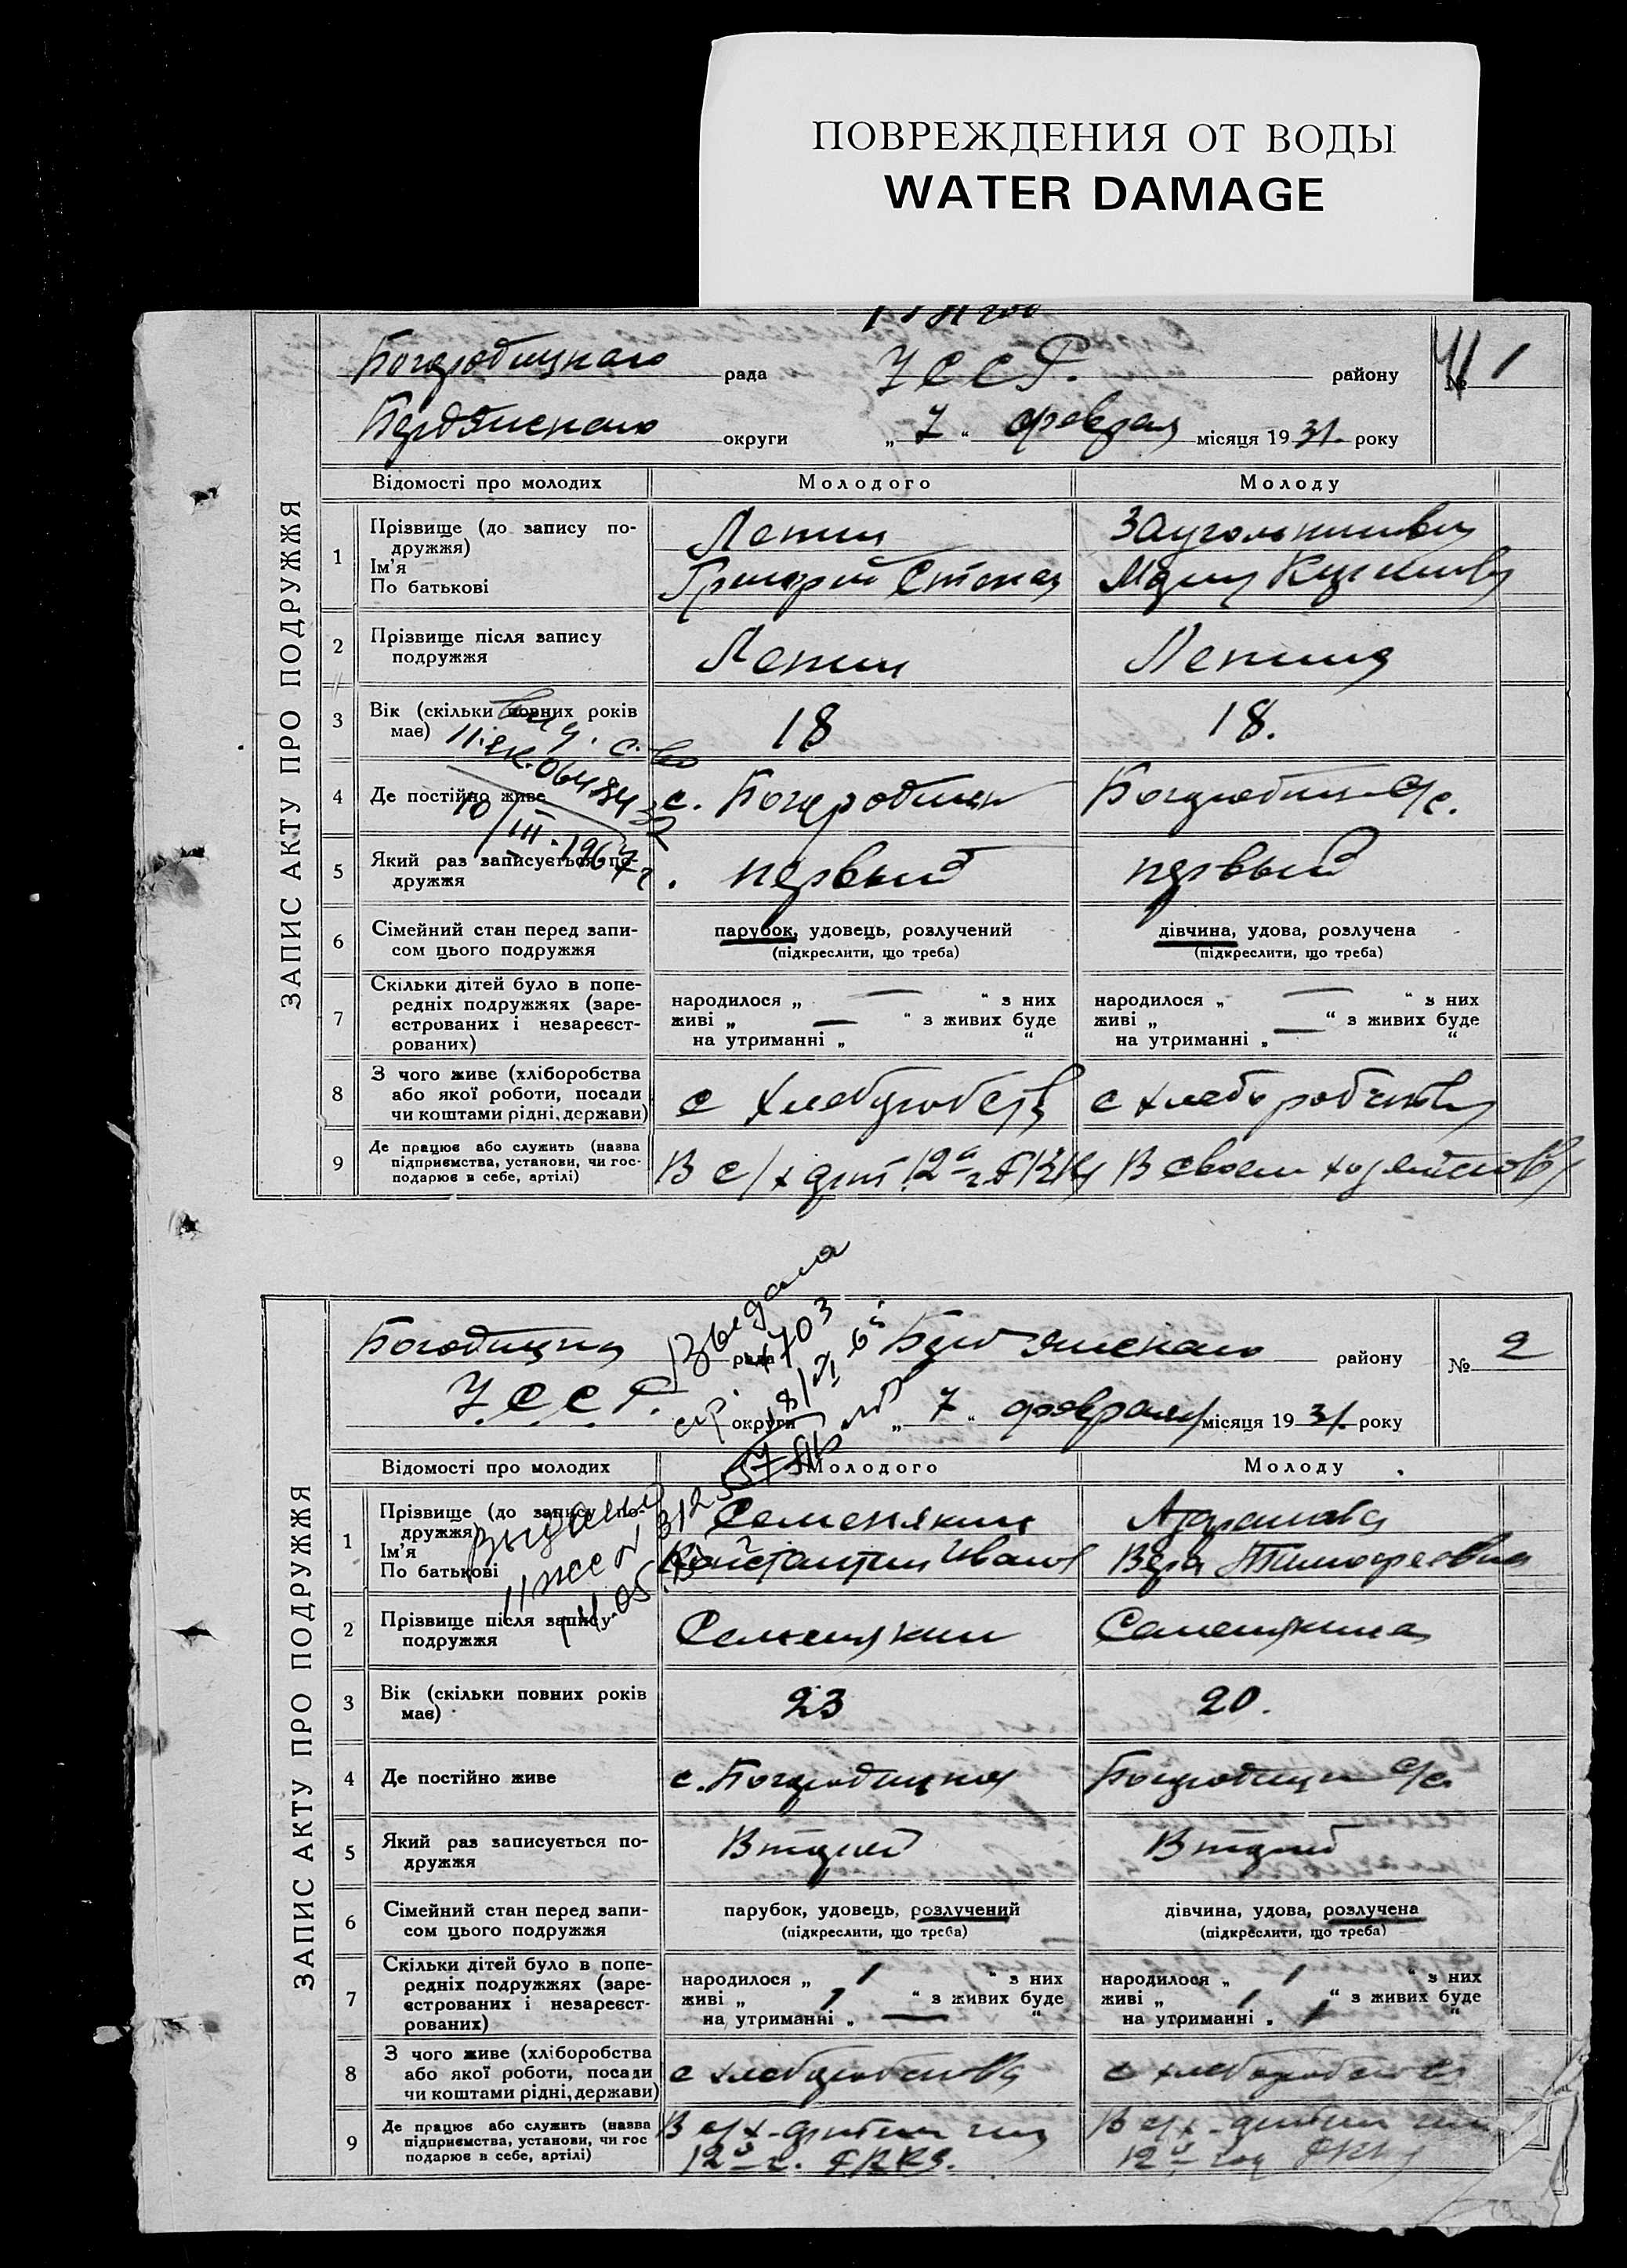 ПОВРЕЖДЕНИЯ ОТ ВОДЫ
WATER DAMAGE
рада УССР. району № 1
Бердянского округи „ 7 “ февраля місяця 1931. року
ЗАПИС АКТУ ПРО ПОДРУЖЖЯ
Відомості про молодих Молодого Молоду
1 Прізвище (до запису по-
дружжя)
Ім'я
По батькові
Лепин
Григорий Степан
Заугольникова
Мария
2 Прізвище після запису
подружжя
Лепин Лепина
3 Вік (скільки повних років
має)
18 18.
4 Де постійно живе
с. Богородицк Богородицк с/с.
10/III.1967 г.
5 Який раз записується по-
дружжя
первый первый
6 Сімейний стан перед запи-
сом цього подружжя
парубок, удовець, розлучений
(підкреслити, що треба)
дівчина, удова, розлучена
(підкреслити, що треба)
7 Скільки дітей було в попе-
редніх подружжях (заре-
єстрованих і незареєст-
рованих)
народилося „ — “ з них
живі „ — “ з живих буде
на утриманні „ “
народилося „ — “ з них
живі „ — “ з живих буде
на утриманні „ “
8 З чого живе (хліборобства
або якої роботи, посади
чи коштами рідні, держави)
с с хлеборобства
9 Де працює або служить (назва
підприємства, установи, чи гос-
подарює в себе, артілі)
В с/х В своем хозяйстве
Выдала
рада Бердянского району № 2
У.С.С.Р. округи „ 7 “ февраля місяця 1931. року
ЗАПИС АКТУ ПРО ПОДРУЖЖЯ
Відомості про молодих Молодого Молоду
1 Прізвище (до запису по-
дружжя)
Ім'я
По батькові
Семенякин
Константин Иванов
Вера Тимофеевна
2 Прізвище після запису
подружжя
Семенякин Семенякина
3 Вік (скільки повних років
має)
23 20.
4 Де постійно живе
с. Богородицкая Богородицк с/с.
5 Який раз записується по-
дружжя
Второй Второй
6 Сімейний стан перед запи-
сом цього подружжя
парубок, удовець, розлучений
(підкреслити, що треба)
дівчина, удова, розлучена
(підкреслити, що треба)
7 Скільки дітей було в попе-
редніх подружжях (заре-
єстрованих і незареєст-
рованих)
народилося „ 1 “ з них
живі „ 1 “ з живих буде
на утриманні „ — “
народилося „ 1 “ з них
живі „ 1 “ з живих буде
на утриманні „ 1 “
8 З чого живе (хліборобства
або якої роботи, посади
чи коштами рідні, держави)
с хлеборобства с хлеборобства
9 Де працює або служить (назва
підприємства, установи, чи гос
подарює в себе, артілі)
В с/х В с/х